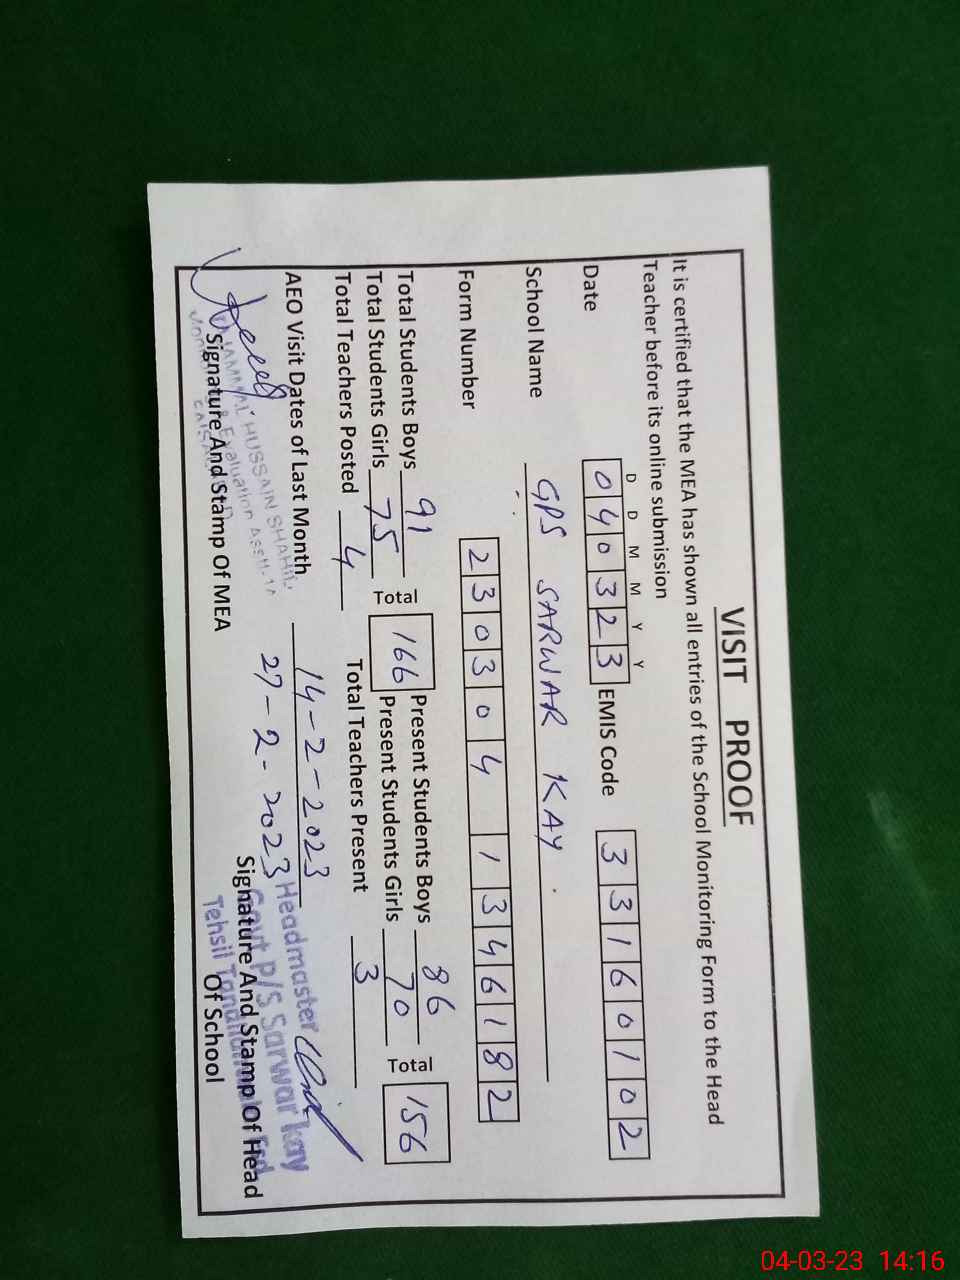 VISIT PROOF
It is certified that the MEA has shown all entries of the School Monitoring Form to the Head
Teacher before its online submission
D D M M Y Y
Date 040323 EMIS Code 33160102
School Name GPS SARWAR KAY
Form Number 230304 1346182
Total Students Boys 91 Total 166 Present Students Boys 86 Total 156
Total Students Girls 75 Present Students Girls 70
Total Teachers Posted 4 Total Teachers Present 3
AEO Visit Dates of Last Month 14-2-2023
27-2-2023
HUSSAIN SHAHID
& Evaluation
Signature And Stamp Of MEA
Headmaster
Govt P/S Sarwar Kay
Tehsil
Signature And Stamp Of Head
Of School
04-03-23 14:16